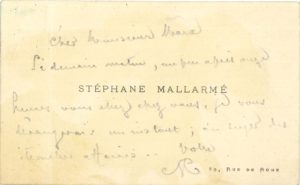 Cher Monsieur Marx
Si demain matin, un peu après onze
STÉPHANE MALLARMÉ
heures vous étiez chez vous, je vous
dérangerais un instant; au sujet des
affaires...
Votre
SM
89, RUE DE ROME